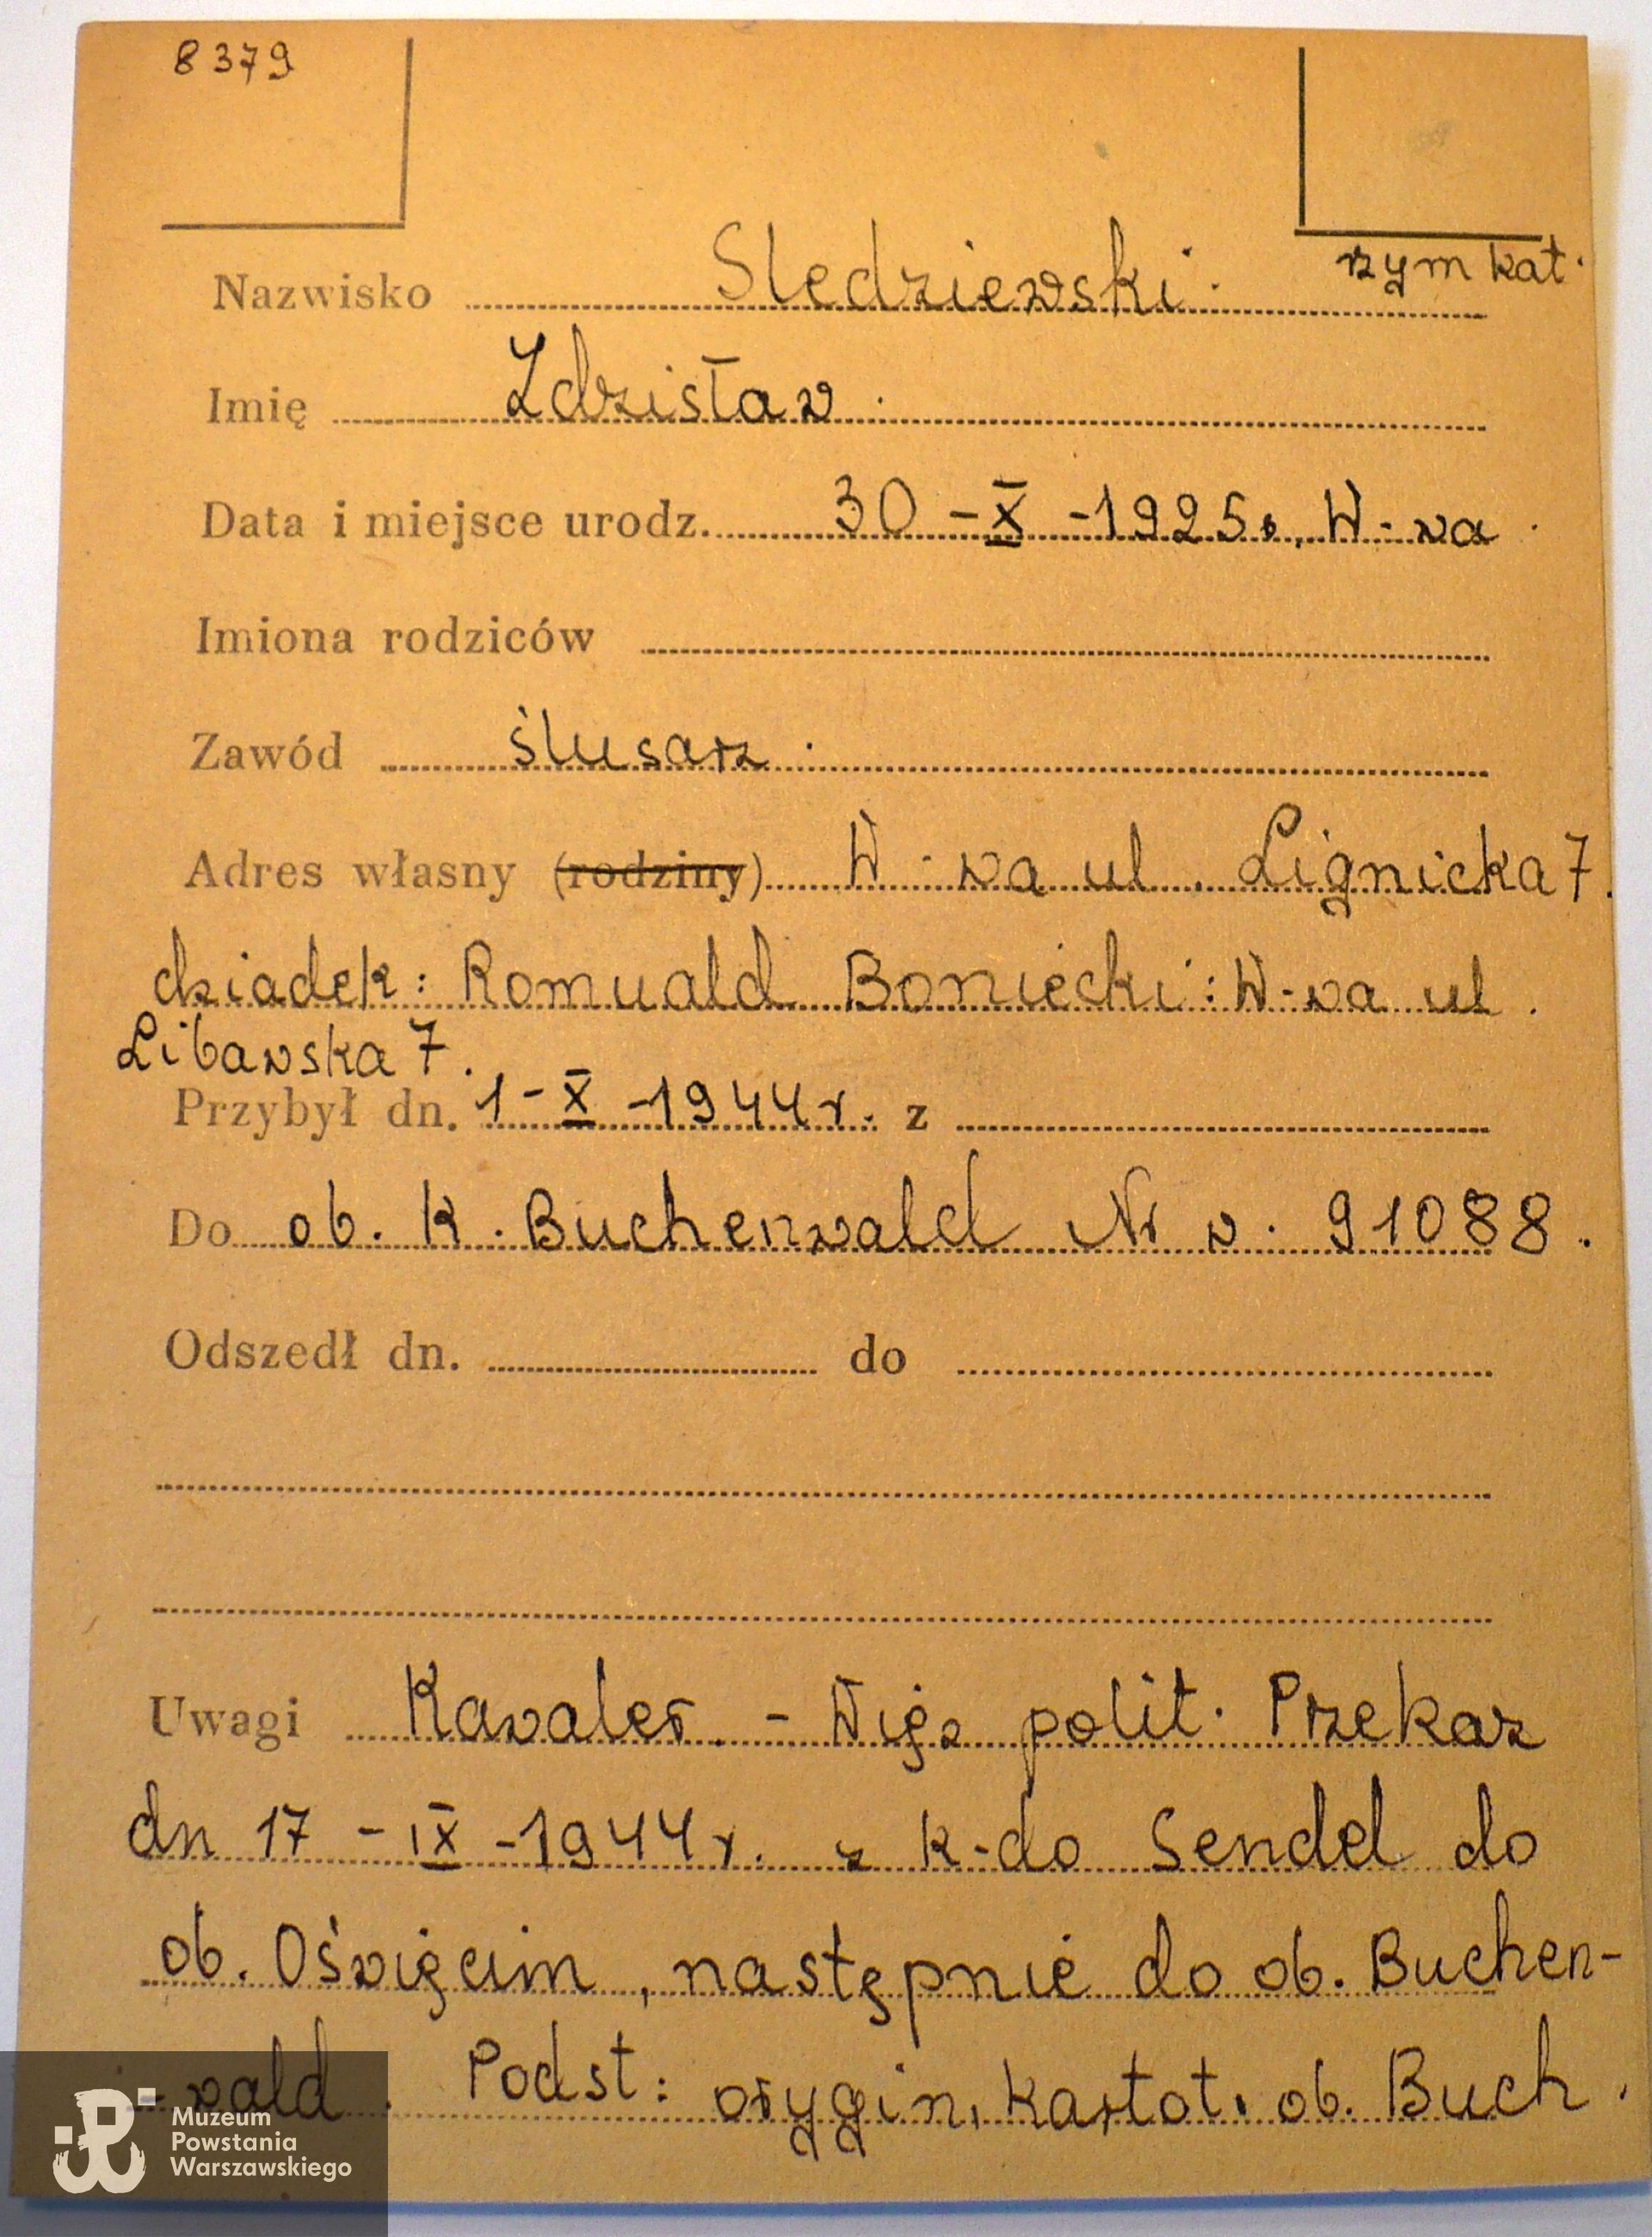 8379
rzym kat.
Nazwisko Sledziewski.
Imię Zdzisław.
Data i miejsce urodz. 30-X-1925r., W-wa.
Imiona rodziców
Zawód ślusarz.
Adres własny (rodziny) W-wa ul. Lignicka 7.
dziadek: Romuald Boniecki: W-wa ul.
Libawska 7.
Przybył dn. 1-X-1944r. z
Do ob. K. Buchenwald Nr w. 91088.
Odszedł dn. do
Uwagi Kawaler. - Więz polit. Przekaz
dn 17-IX-1944r. z k-do Sendel do
ob. Oświęcim, następnie do ob. Buchen-
-wald. Podst: orygin. kartot. ob. Buch.
Muzeum
Powstania
Warszawskiego